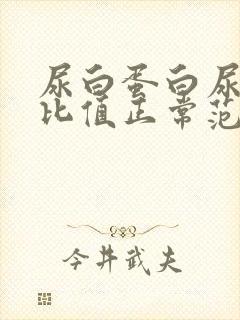 尿白蛋白尿
比值正常范
今井武夫